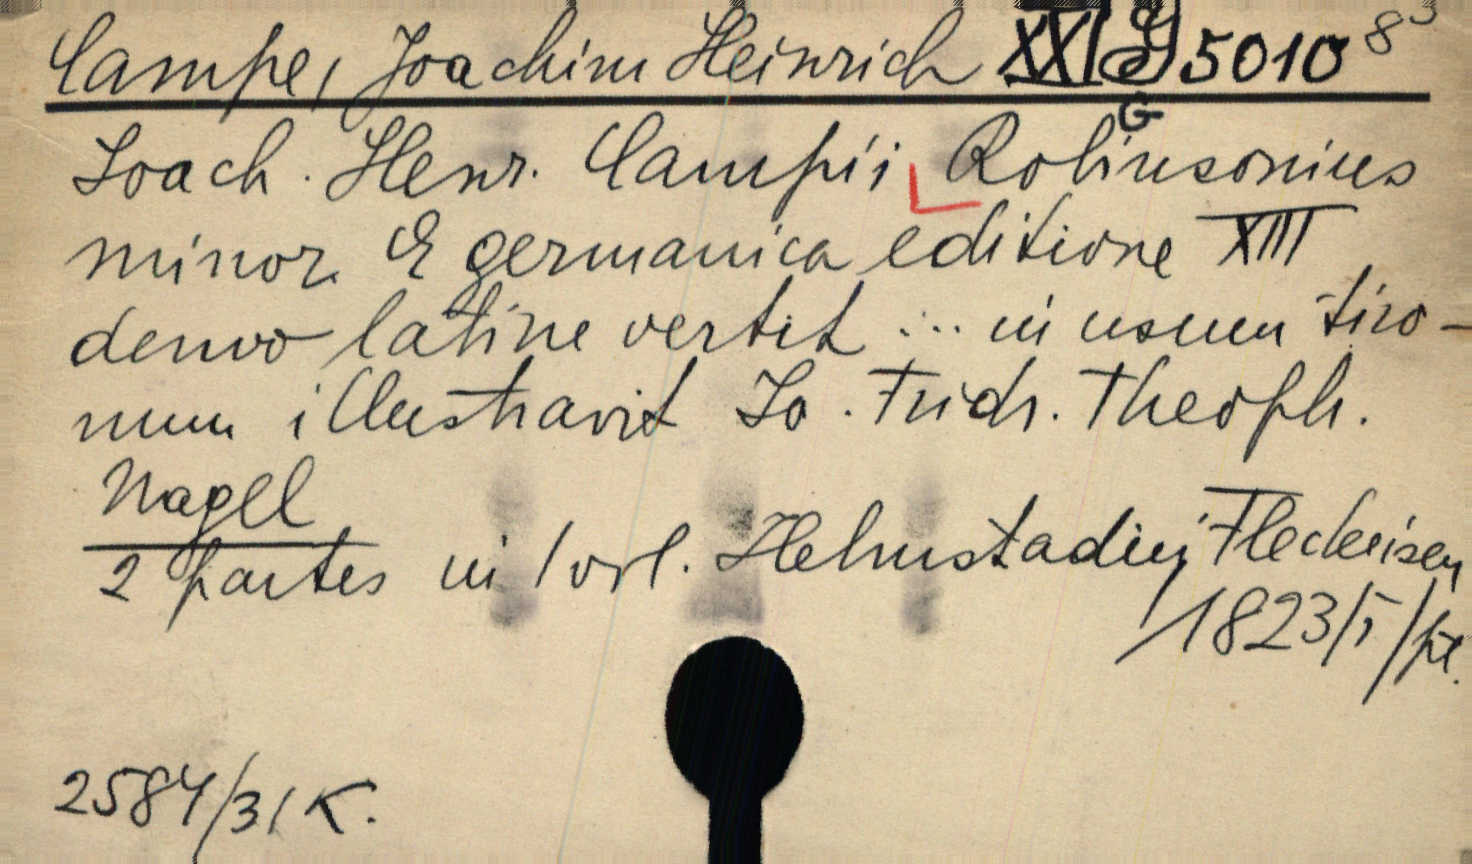 Campe, Joachim Heinrich XXI G 5010 8°
G
Ioach. Henr. Campii Robinsonius
minor. E germanica editione XIII
denuo latine vertit ... in usum tiro-
num illustravit Io. Fridr. Theoph.
Nagel
2 partes in 1 vol. Helmstadii, Fleckeisen
1823/I/pt.
2584/31 K.